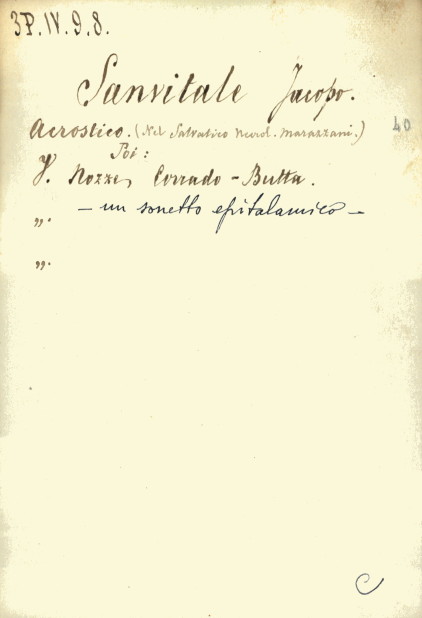 3P.IV.9.8.
Sanvitale Jacopo.
Acrostico. (Nel Salvatico Nurol. Marazzani.) 40
Poi:
V. Nozze, Corrado - Butta.
„. — un sonetto epitalamico —
„.
C